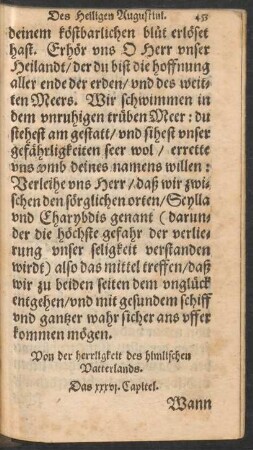 Des Heiligen Augustini. 453
deinem köstbarlichen blůt erlöset
hast. Erhör vns O Herr vnser
Heilandt/der du bist die hoffnung
aller ende der erden/vnd des weit-
ten Meers. Wir schwimmen in
dem vnruhigen trüben Meer: du
stehest am gestatt/vnd sihest vnser
gefährligkeiten seer wol / errette
vns vmb deines namens willen:
Verleihe vns Herr/daß wir zwi-
schen den sörglichen orten/Scylla
vnd Charybdis genant (darun-
der die höchste gefahr der verlie-
rung vnser seligkeit verstanden
wirdt) also das mittel treffen/daß
wir zu beiden seiten dem vnglück
entgehen/vnd mit gesundem schiff
vnd gantzer wahr sicher ans vffer
kommen mögen.
Von der herrligkeit des himlischen
Vatterlands.
Das xxxvj. Capitel.
Wann